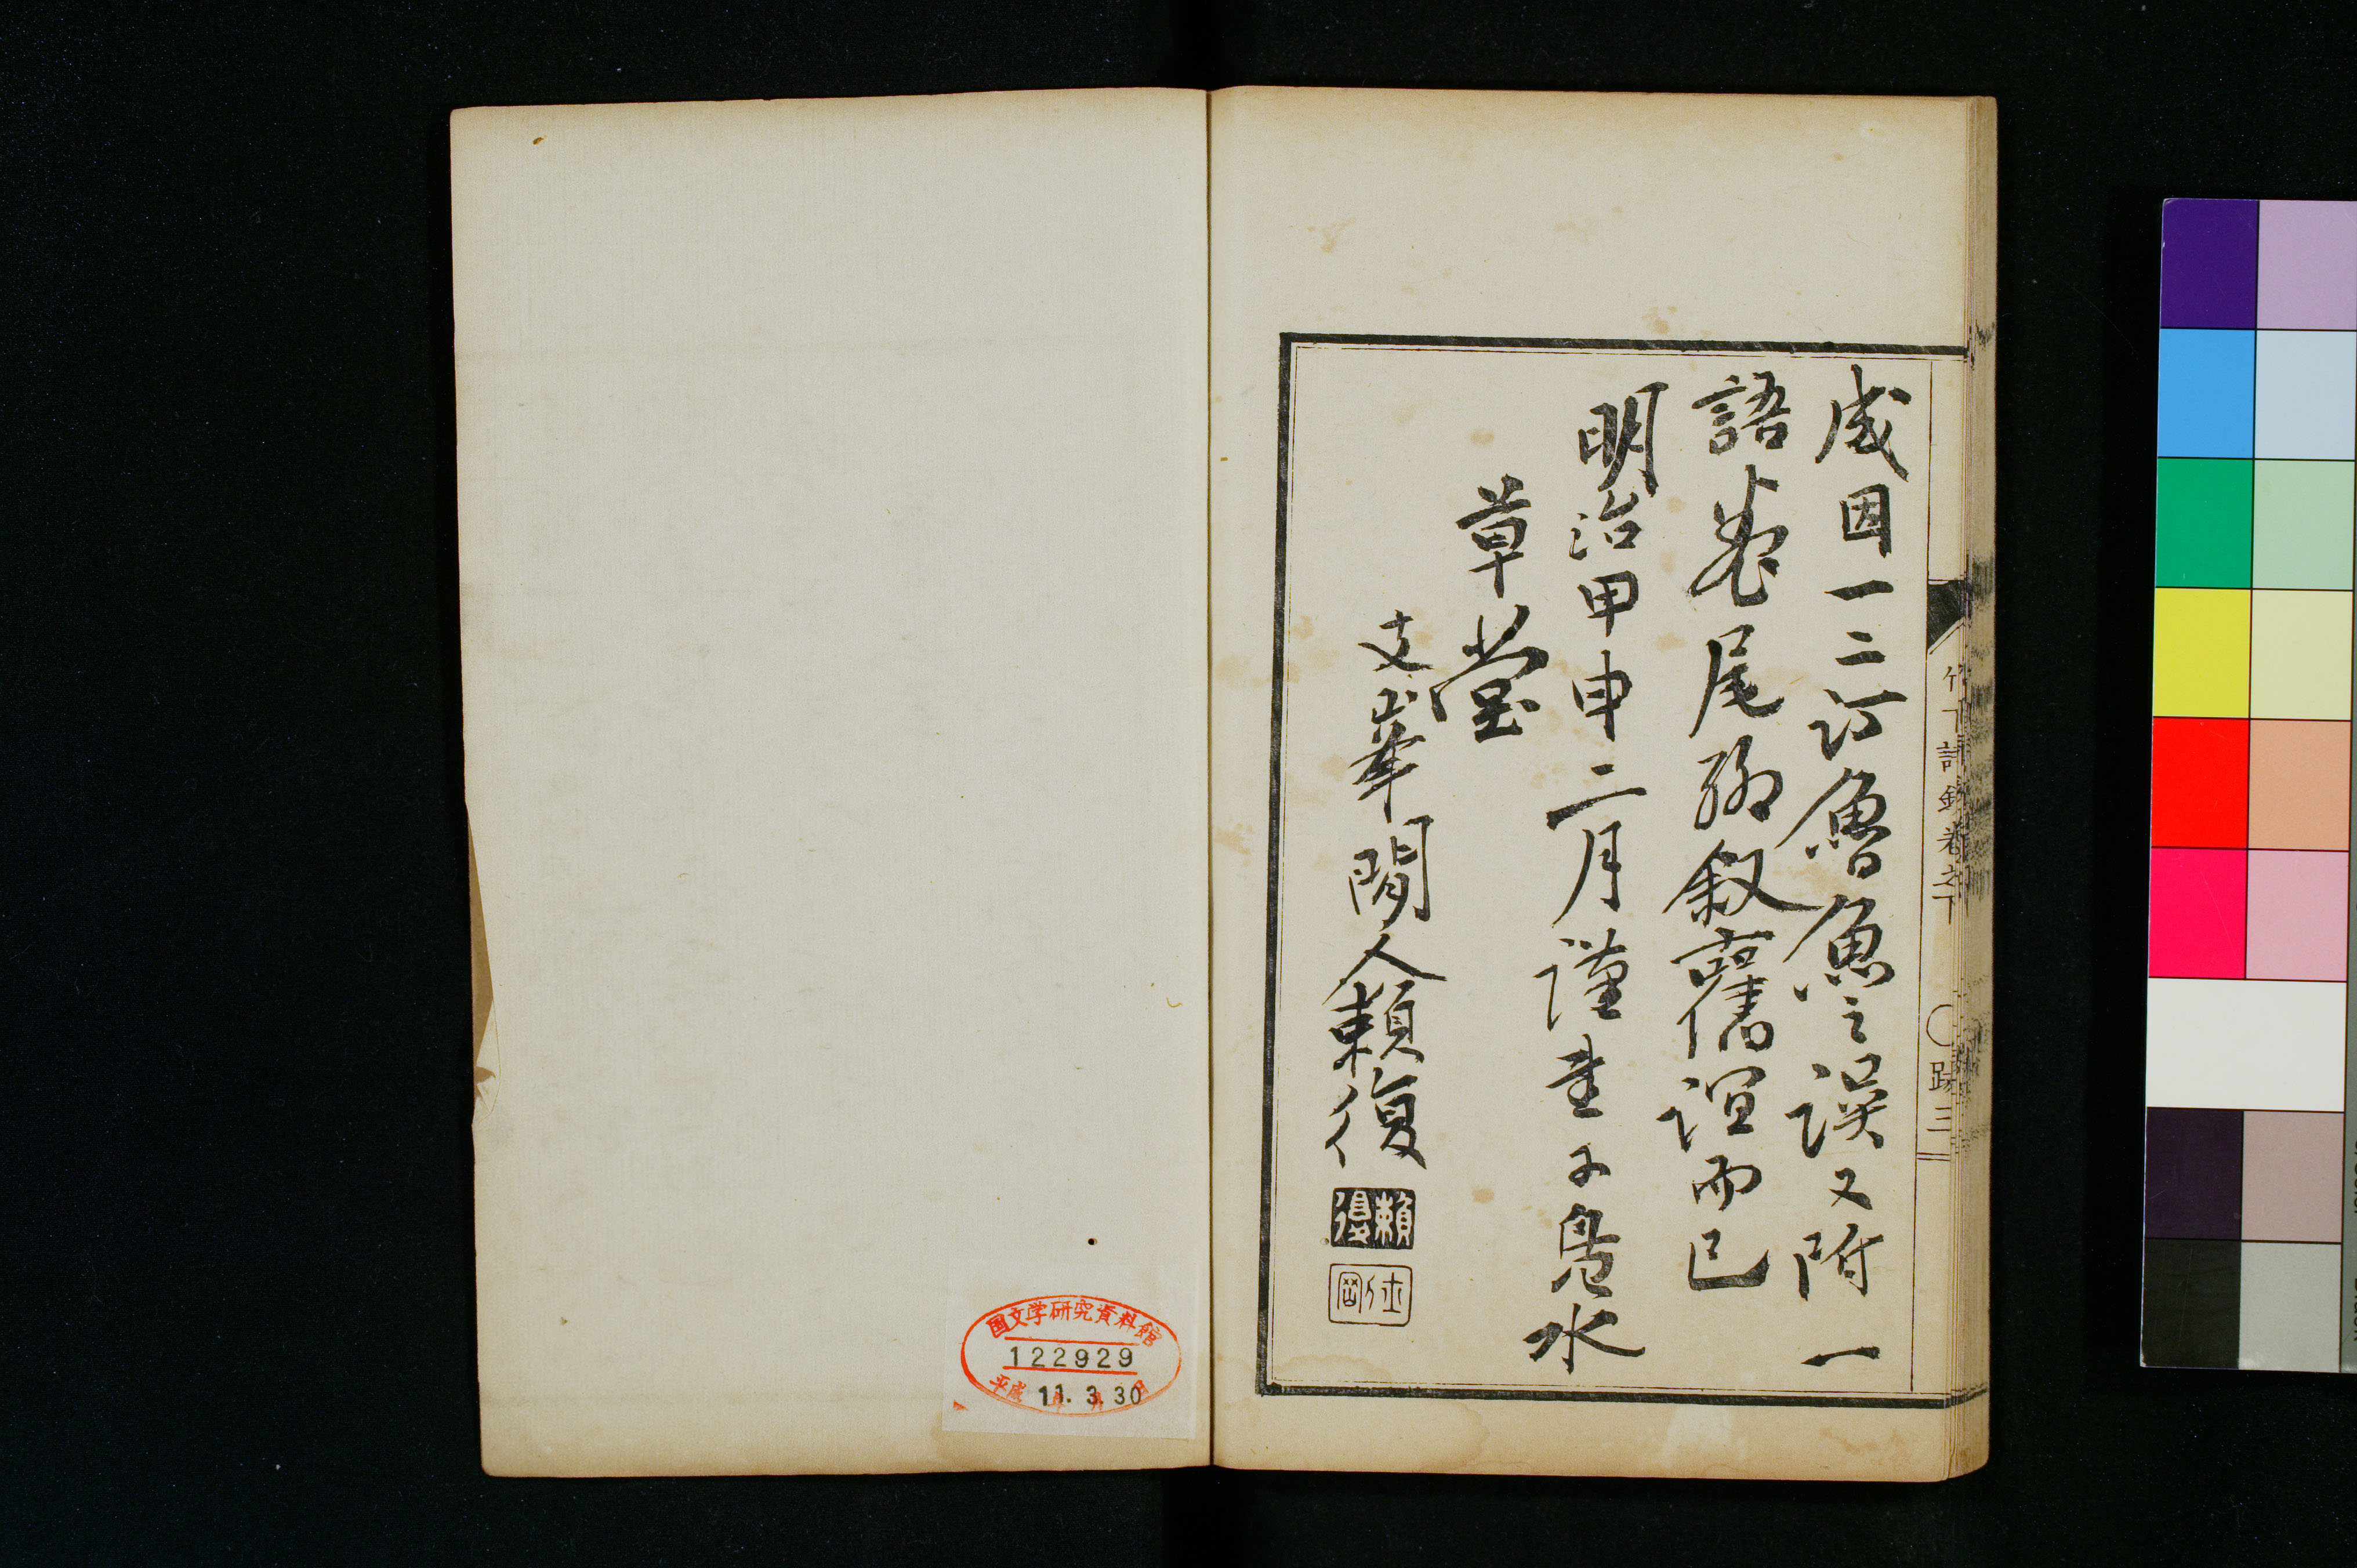 成因一二訂魯魚之誤又附一
語卷尾聊叙舊誼而已
明治甲申二月謹書于鳧水
草堂
支峯閒人賴復
賴復
士剛
竹下詩鈔卷之下
〇跋三
国文学研究資料館
122929
平成 11. 3. 30